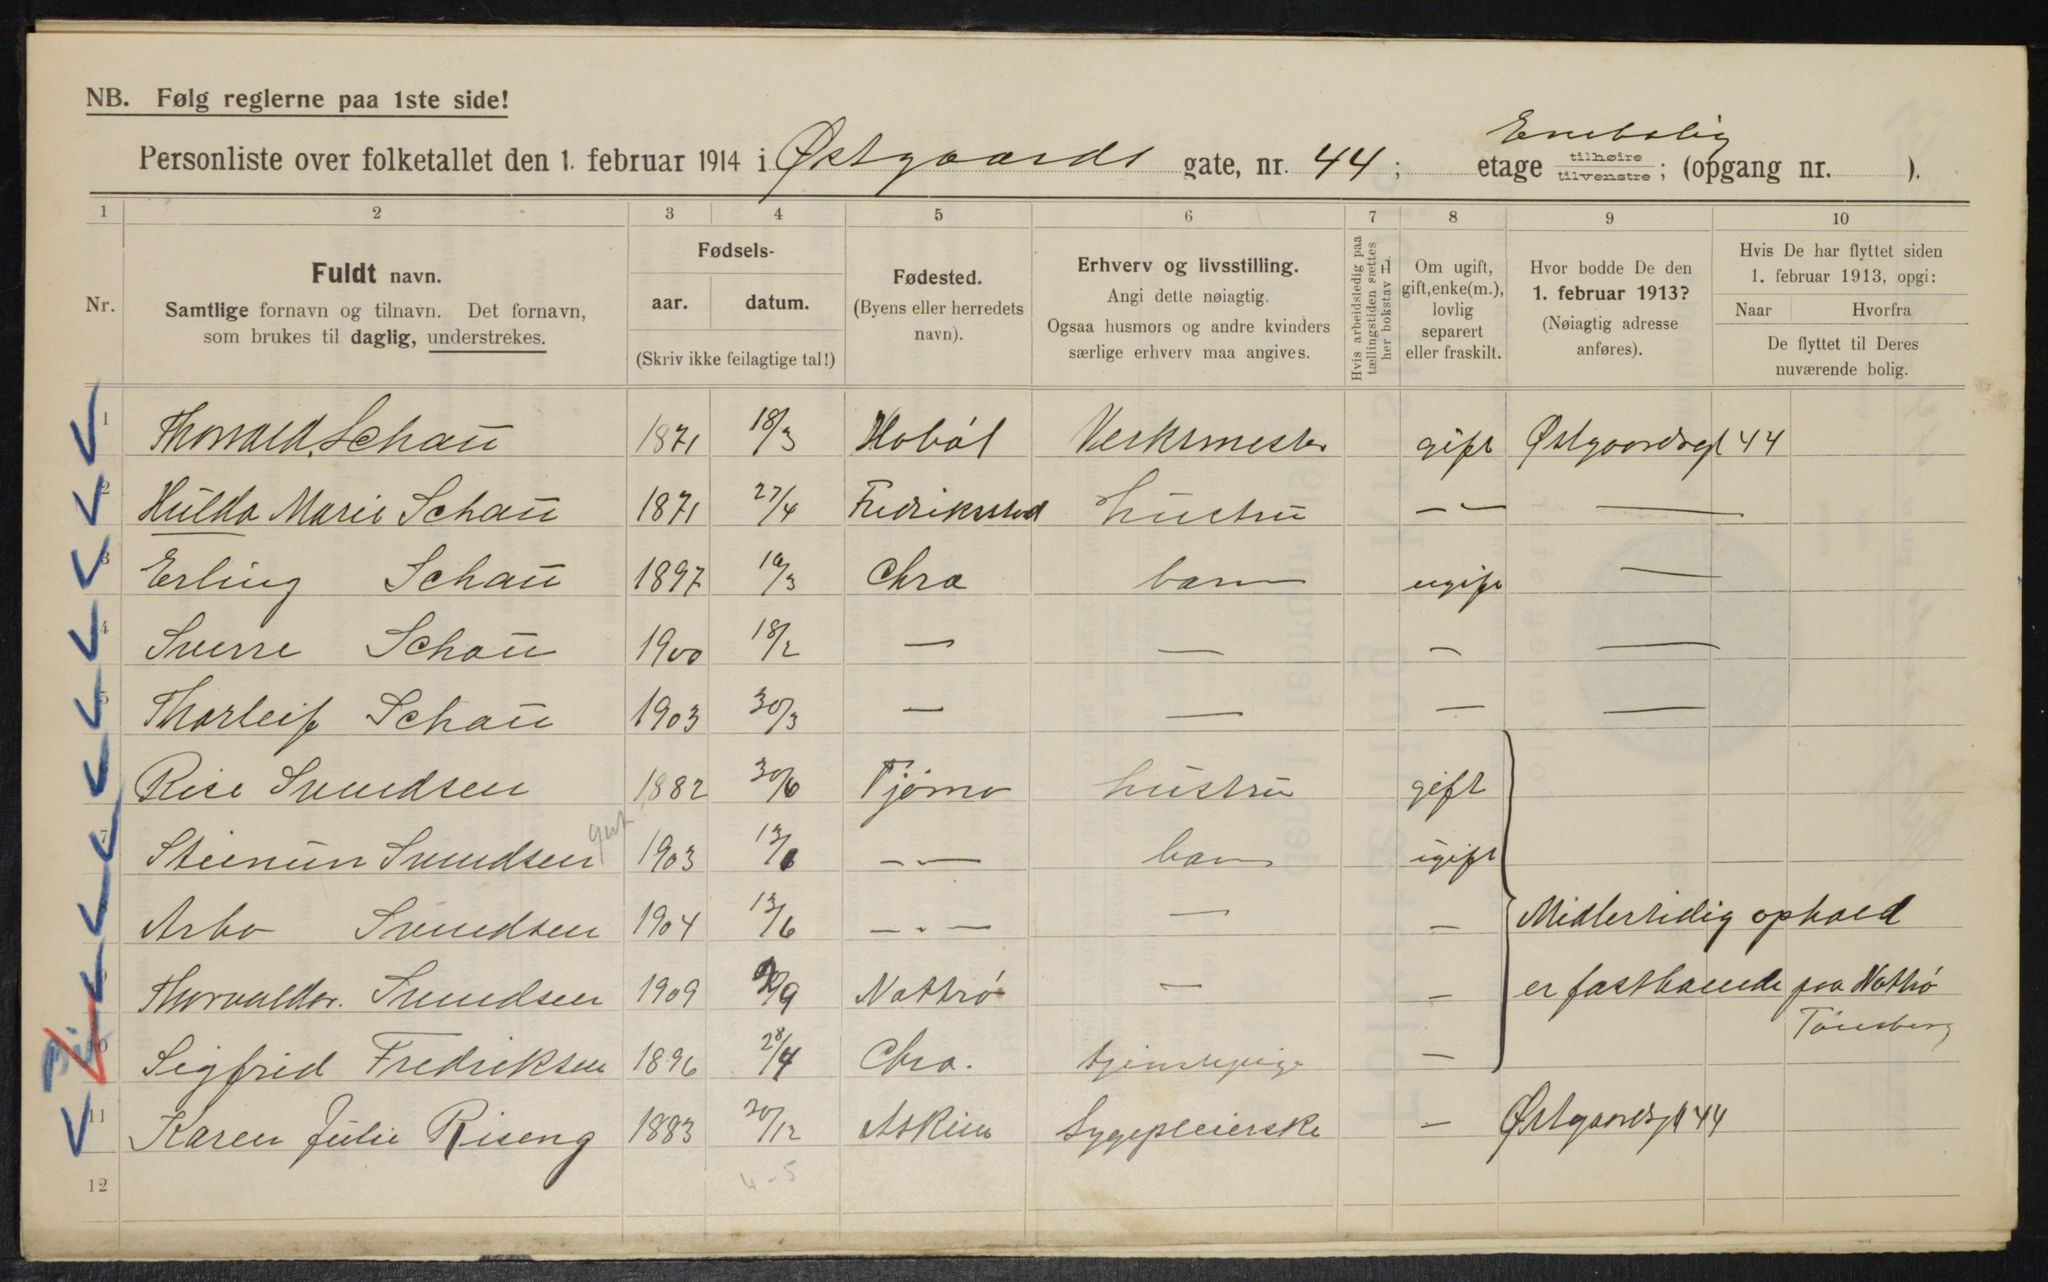 NB. Følg reglerne paa 1ste side!
Enebolig
Personliste over folketallet den 1. februar 1914 i Østgaards gate, nr. 44; etage tilhøire tilvenstre; (opgang nr. ).
1 2 3 4 5 6 7 8 9 10
Nr.
Fuldt navn.
Samtlige fornavn og tilnavn. Det fornavn,
som brukes til daglig, understrekes.
Fødsels-
aar. datum.
(Skriv ikke feilagtige tal!)
Fødested.
(Byens eller herredets
navn).
Erhverv og livsstilling.
Angi dette nøiagtig.
Ogsaa husmors og andre kvinders
særlige erhverv maa angives.
Hvis arbeidsledig paa
tællingstiden sættes
her bokstav L
Om ugift,
gift, enke(m.),
lovlig
separert
eller fraskilt.
Hvor bodde De den
1. februar 1913?
(Nøiagtig adresse
anføres).
Hvis De har flyttet siden
1. februar 1913, opgi:
Naar Hvorfra
De flyttet til Deres
nuværende bolig.
1 Thorvald Schau 1871 18/3 Hobøl Verksmester gift Østgaardsgt 44
2 Hulda Marie Schau 1871 27/4 Fredriksstad hustru — —
3 Erling Schau 1897 /3 Chra barn ugift —
4 Sverre Schau 1900 18/2 — — — —
5 Thorleif Schau 1903 30/3 — — — —
Rise Svendsen 1882 30/6 Tjømø hustru gift
7 Steinun Svendsen gut 1903 13/6 — barn ugift
Arbo Svendsen 1904 13/6 — — — Midlertidig ophold
Thorvald Svendsen 1909 /9 Nøttrø — — er fastboende paa Nøttrø
Tønsberg
10 Sigfrid Fredriksen 1896 28/4 Chra. tjenestepige —
11 Karen Julie Riseng 1883 20/12 Askim Sygepleierske — Østgaardsgt 44
12 4-5